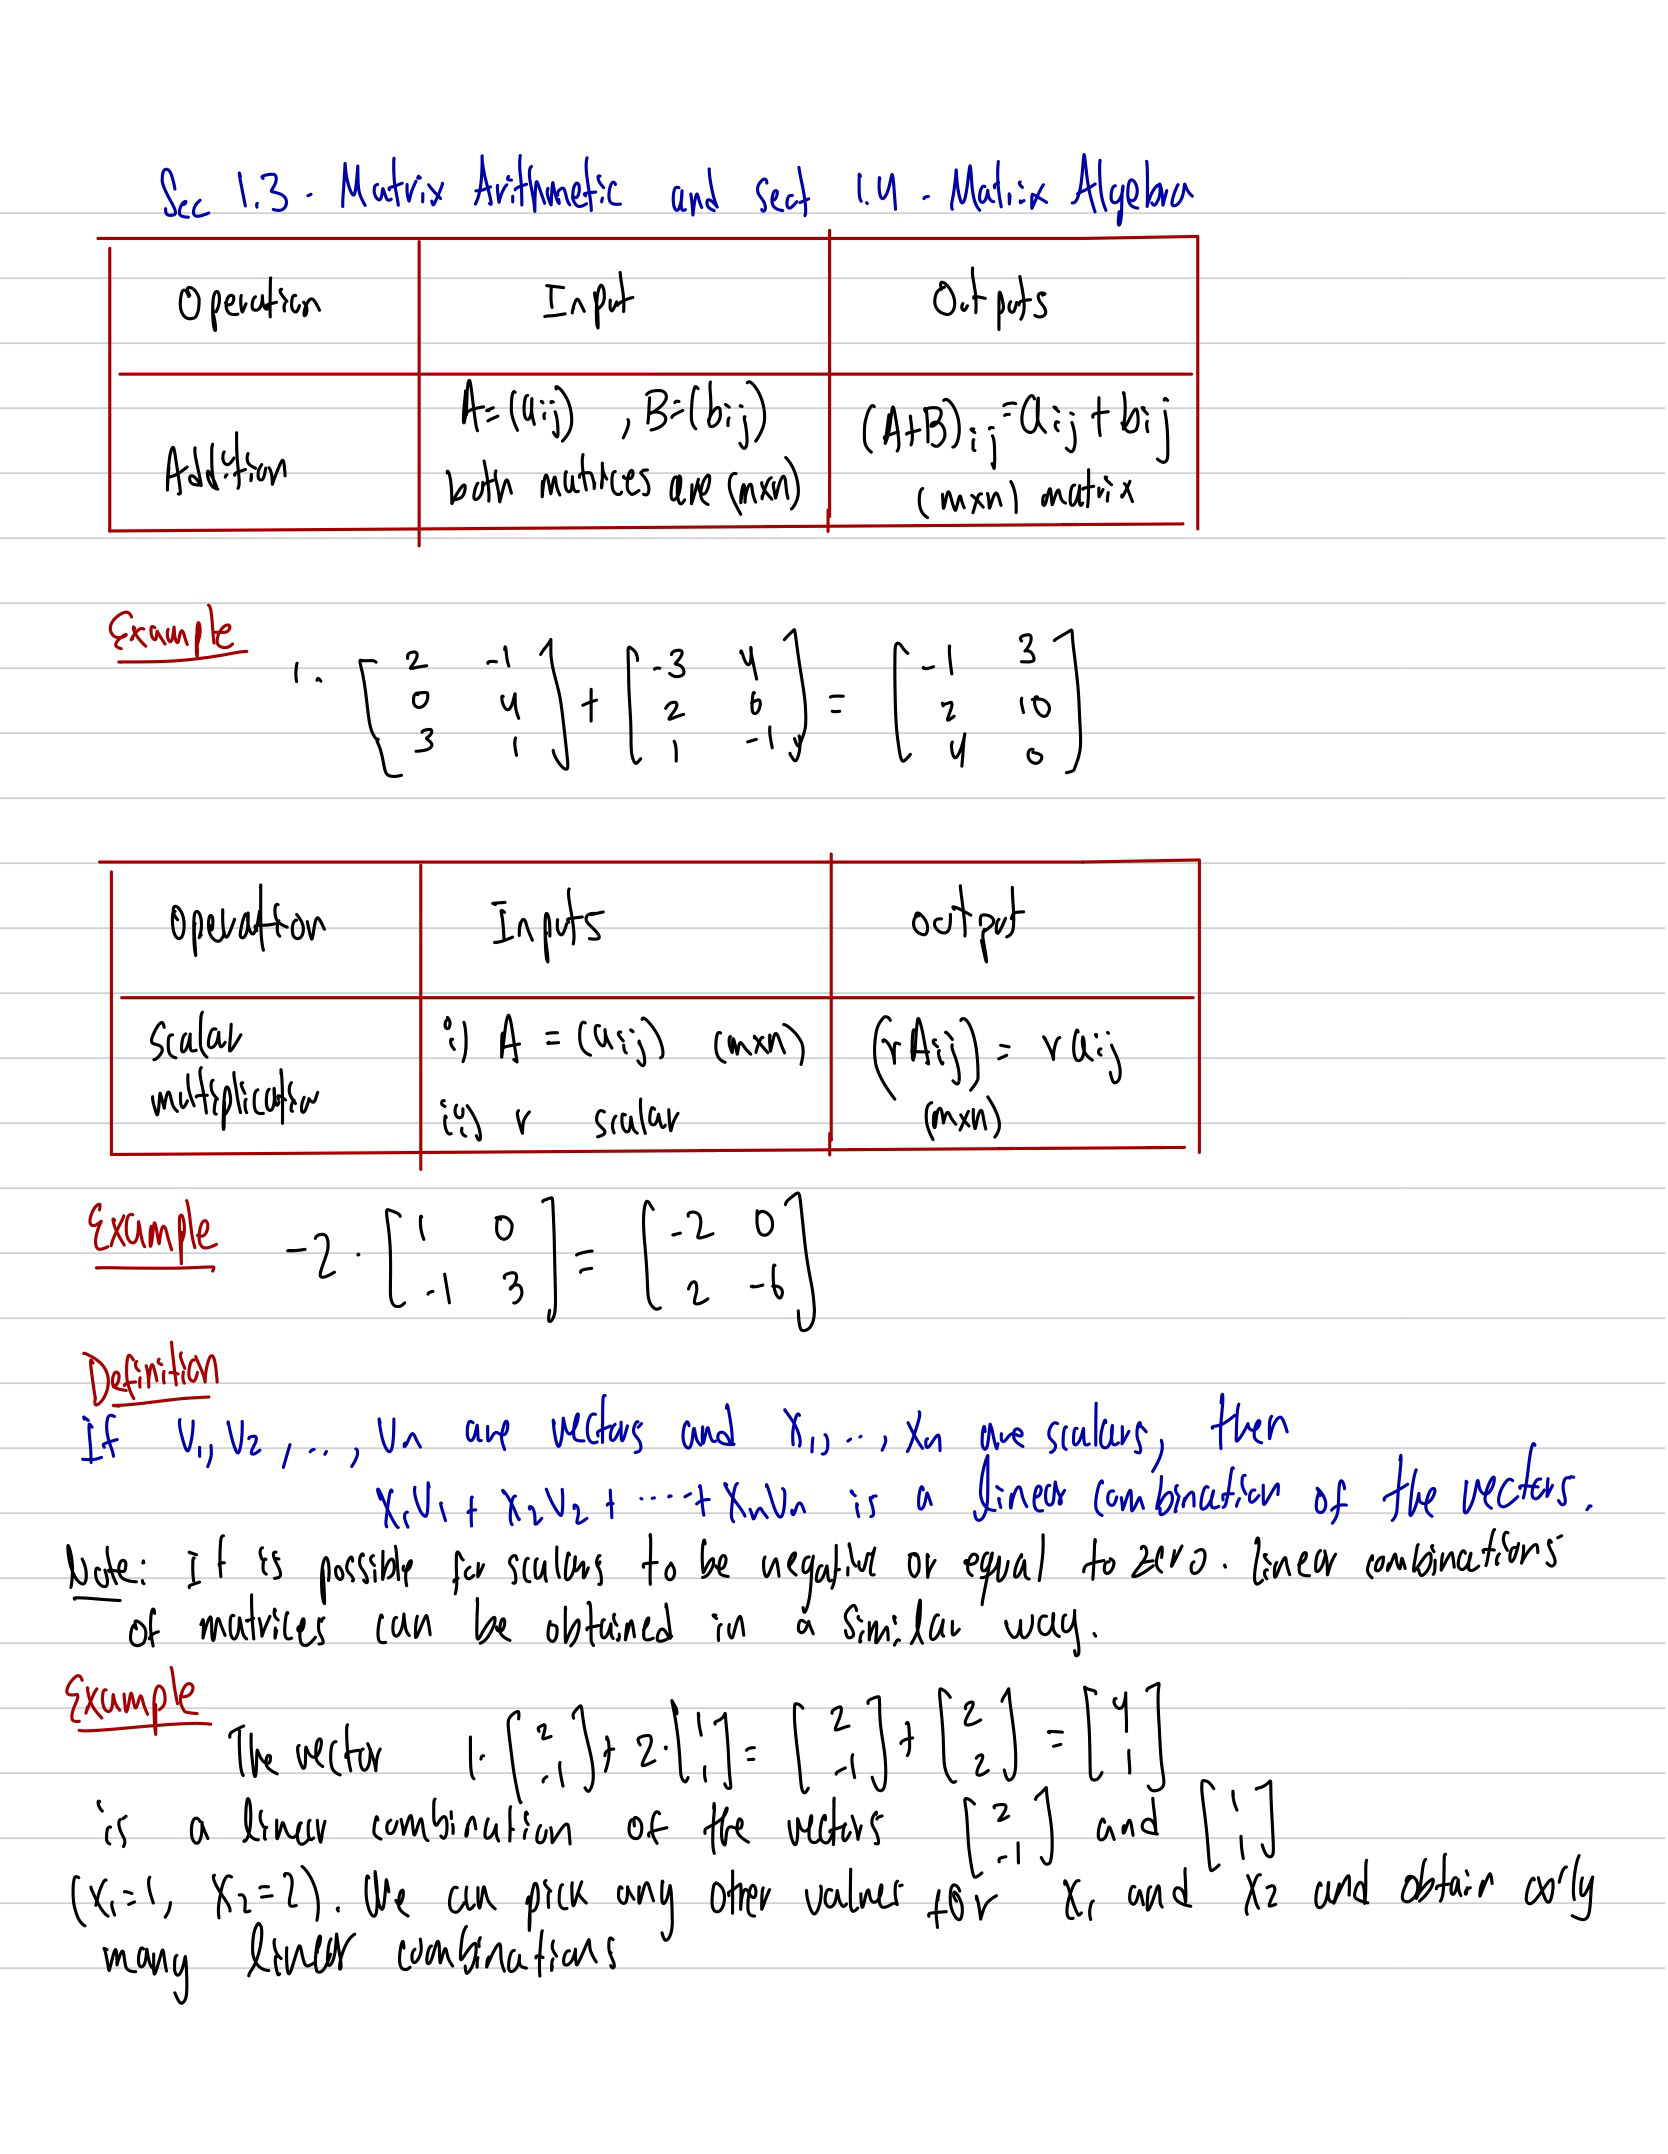 Sec 1.3 - Matrix Arithmetic and sect 1.4 - Matrix Algebra
Operation Input Outputs
Addition A=(aij) , B=(bij) (A+B)ij = aij + bij
both matrices are (mxn) (mxn) matrix
Example
1. [2 -1; 0 4; 3 1] + [-3 4; 2 6; 1 -1] = [-1 3; 2 10; 4 0]
Operation Inputs output
Scalar multiplication i) A = (aij) (mxn) (rAij) = raij
ii) r scalar (mxn)
Example -2 · [1 0; -1 3] = [-2 0; 2 -6]
Definition
If V1, V2, ..., Vn are vectors and X1, ..., Xn are scalars, then
X1V1 + X2V2 + ....+ XnVn is a linear combination of the vectors.
Note: It is possible for scalars to be negative or equal to zero. linear combinations
of matrices can be obtained in a similar way.
Example
The vector 1·[2; -1] + 2·[1; 1] = [2; -1] + [2; 2] = [4; 1]
is a linear combination of the vectors [2; -1] and [1; 1]
(X1=1, X2=2). We can pick any other values for X1 and X2 and obtain ∞'ly
many linear combinations